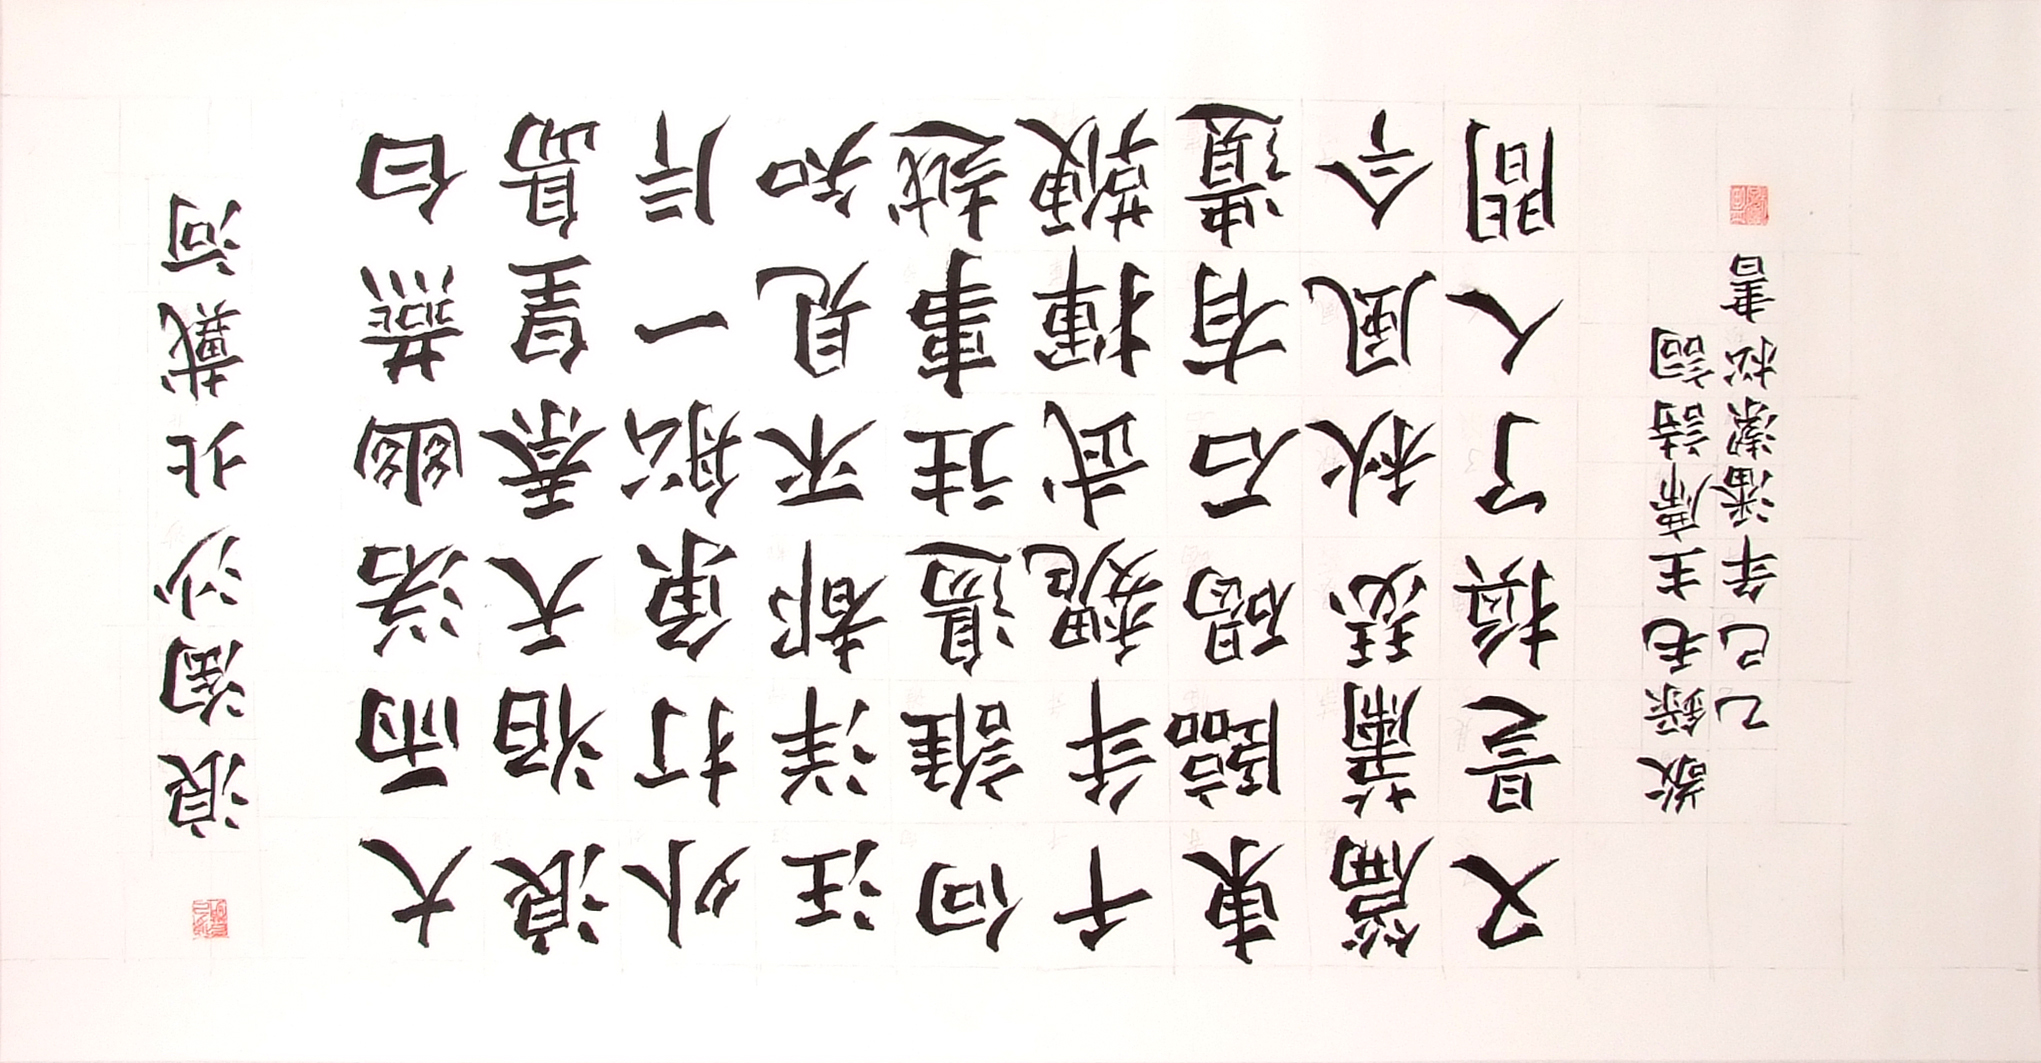 浪淘沙北戴河
大雨落幽燕白
浪滔天秦皇島
外打魚船一片
汪洋都不見知
向誰邊往事越
千年魏武揮鞭
東臨碣石有遺
篇蕭瑟秋風今
又是換了人間
敬錄毛主席詩詞
乙巳年潘潔松書